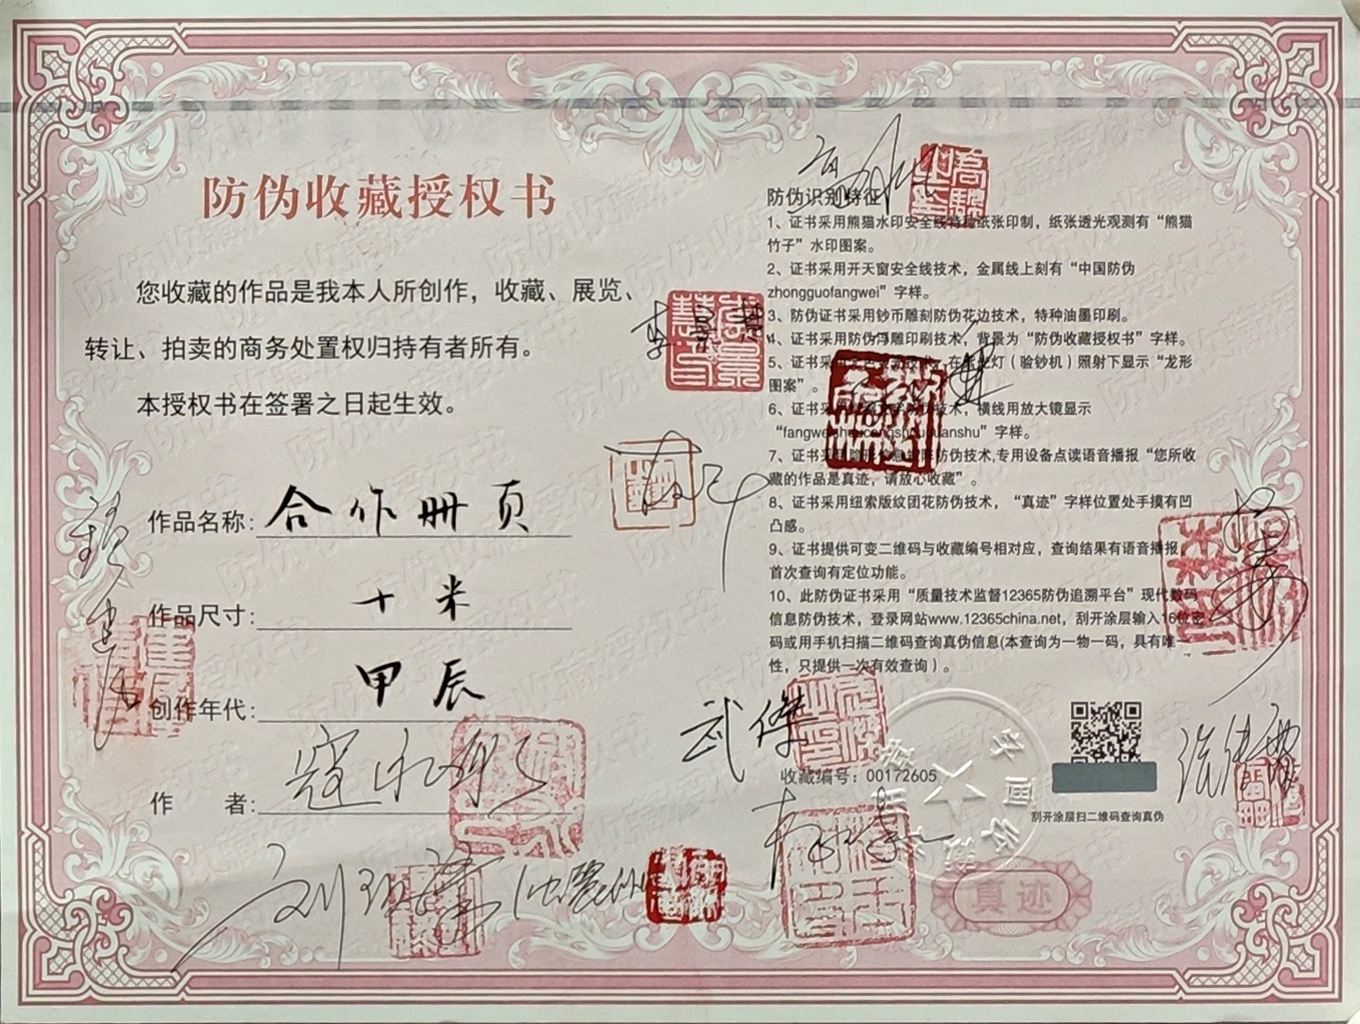 防伪收藏授权书
您收藏的作品是我本人所创作，收藏、展览、
转让、拍卖的商务处置权归持有者所有。
本授权书在签署之日起生效。
作品名称：合作册页
作品尺寸：十米
创作年代：甲辰
作 者：寇
防伪识别特征
1、证书采用熊猫水印安全线特种纸张印制，纸张透光观测有“熊猫
竹子”水印图案。
2、证书采用开天窗安全线技术，金属线上刻有“中国防伪
zhongguofangwei”字样。
3、防伪证书采用钞币雕刻防伪花边技术，特种油墨印刷。
4、证书采用防伪浮雕印刷技术，背景为“防伪收藏授权书”字样。
5、证书采 技术，在 光灯（验钞机）照射下显示“龙形
图案”。
6、证书采 技术，横线用放大镜显示
“fangweishoucangshouquanshu”字样。
7、证书采 防伪技术,专用设备点读语音播报“您所收
藏的作品是真迹，请放心收藏”。
8、证书采用纽索版纹团花防伪技术，“真迹”字样位置处手摸有凹
凸感。
9、证书提供可变二维码与收藏编号相对应，查询结果有语音播报，
首次查询有定位功能。
10、此防伪证书采用“质量技术监督12365防伪追溯平台”现代数码
信息防伪技术，登录网站www.12365china.net，刮开涂层输入16位密
码或用手机扫描二维码查询真伪信息(本查询为一物一码，具有唯一
性，只提供一次有效查询）。
武傑
收藏编号：00172605
刮开涂层扫二维码查询真伪
真迹